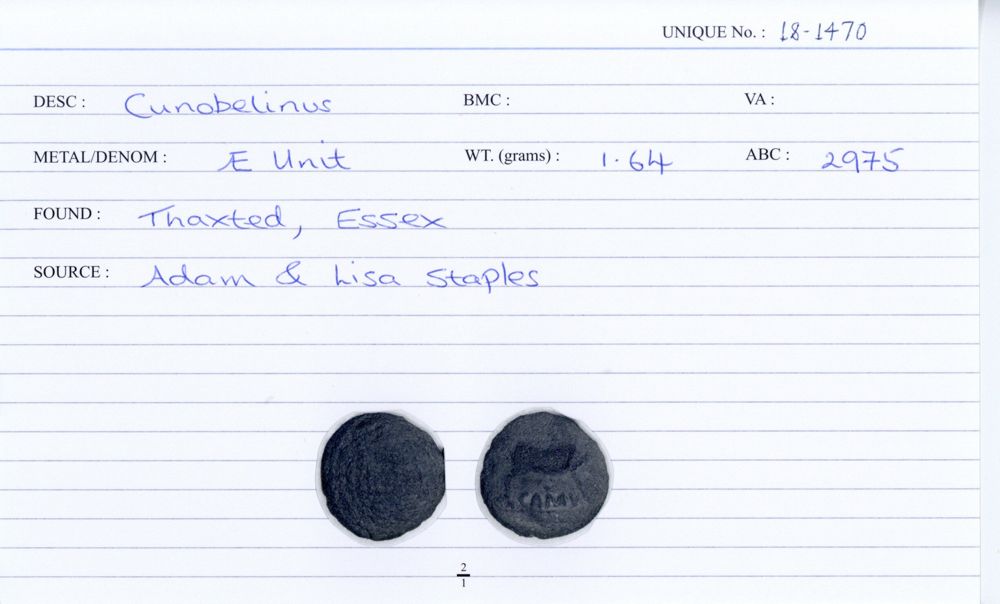 UNIQUE No. : 18-1470
DESC : Cunobelinus BMC : VA :
METAL/DENOM : Æ Unit WT. (grams) : 1.64 ABC : 2975
FOUND : Thaxted, Essex
SOURCE : Adam & Lisa Staples
CAMV
2
1